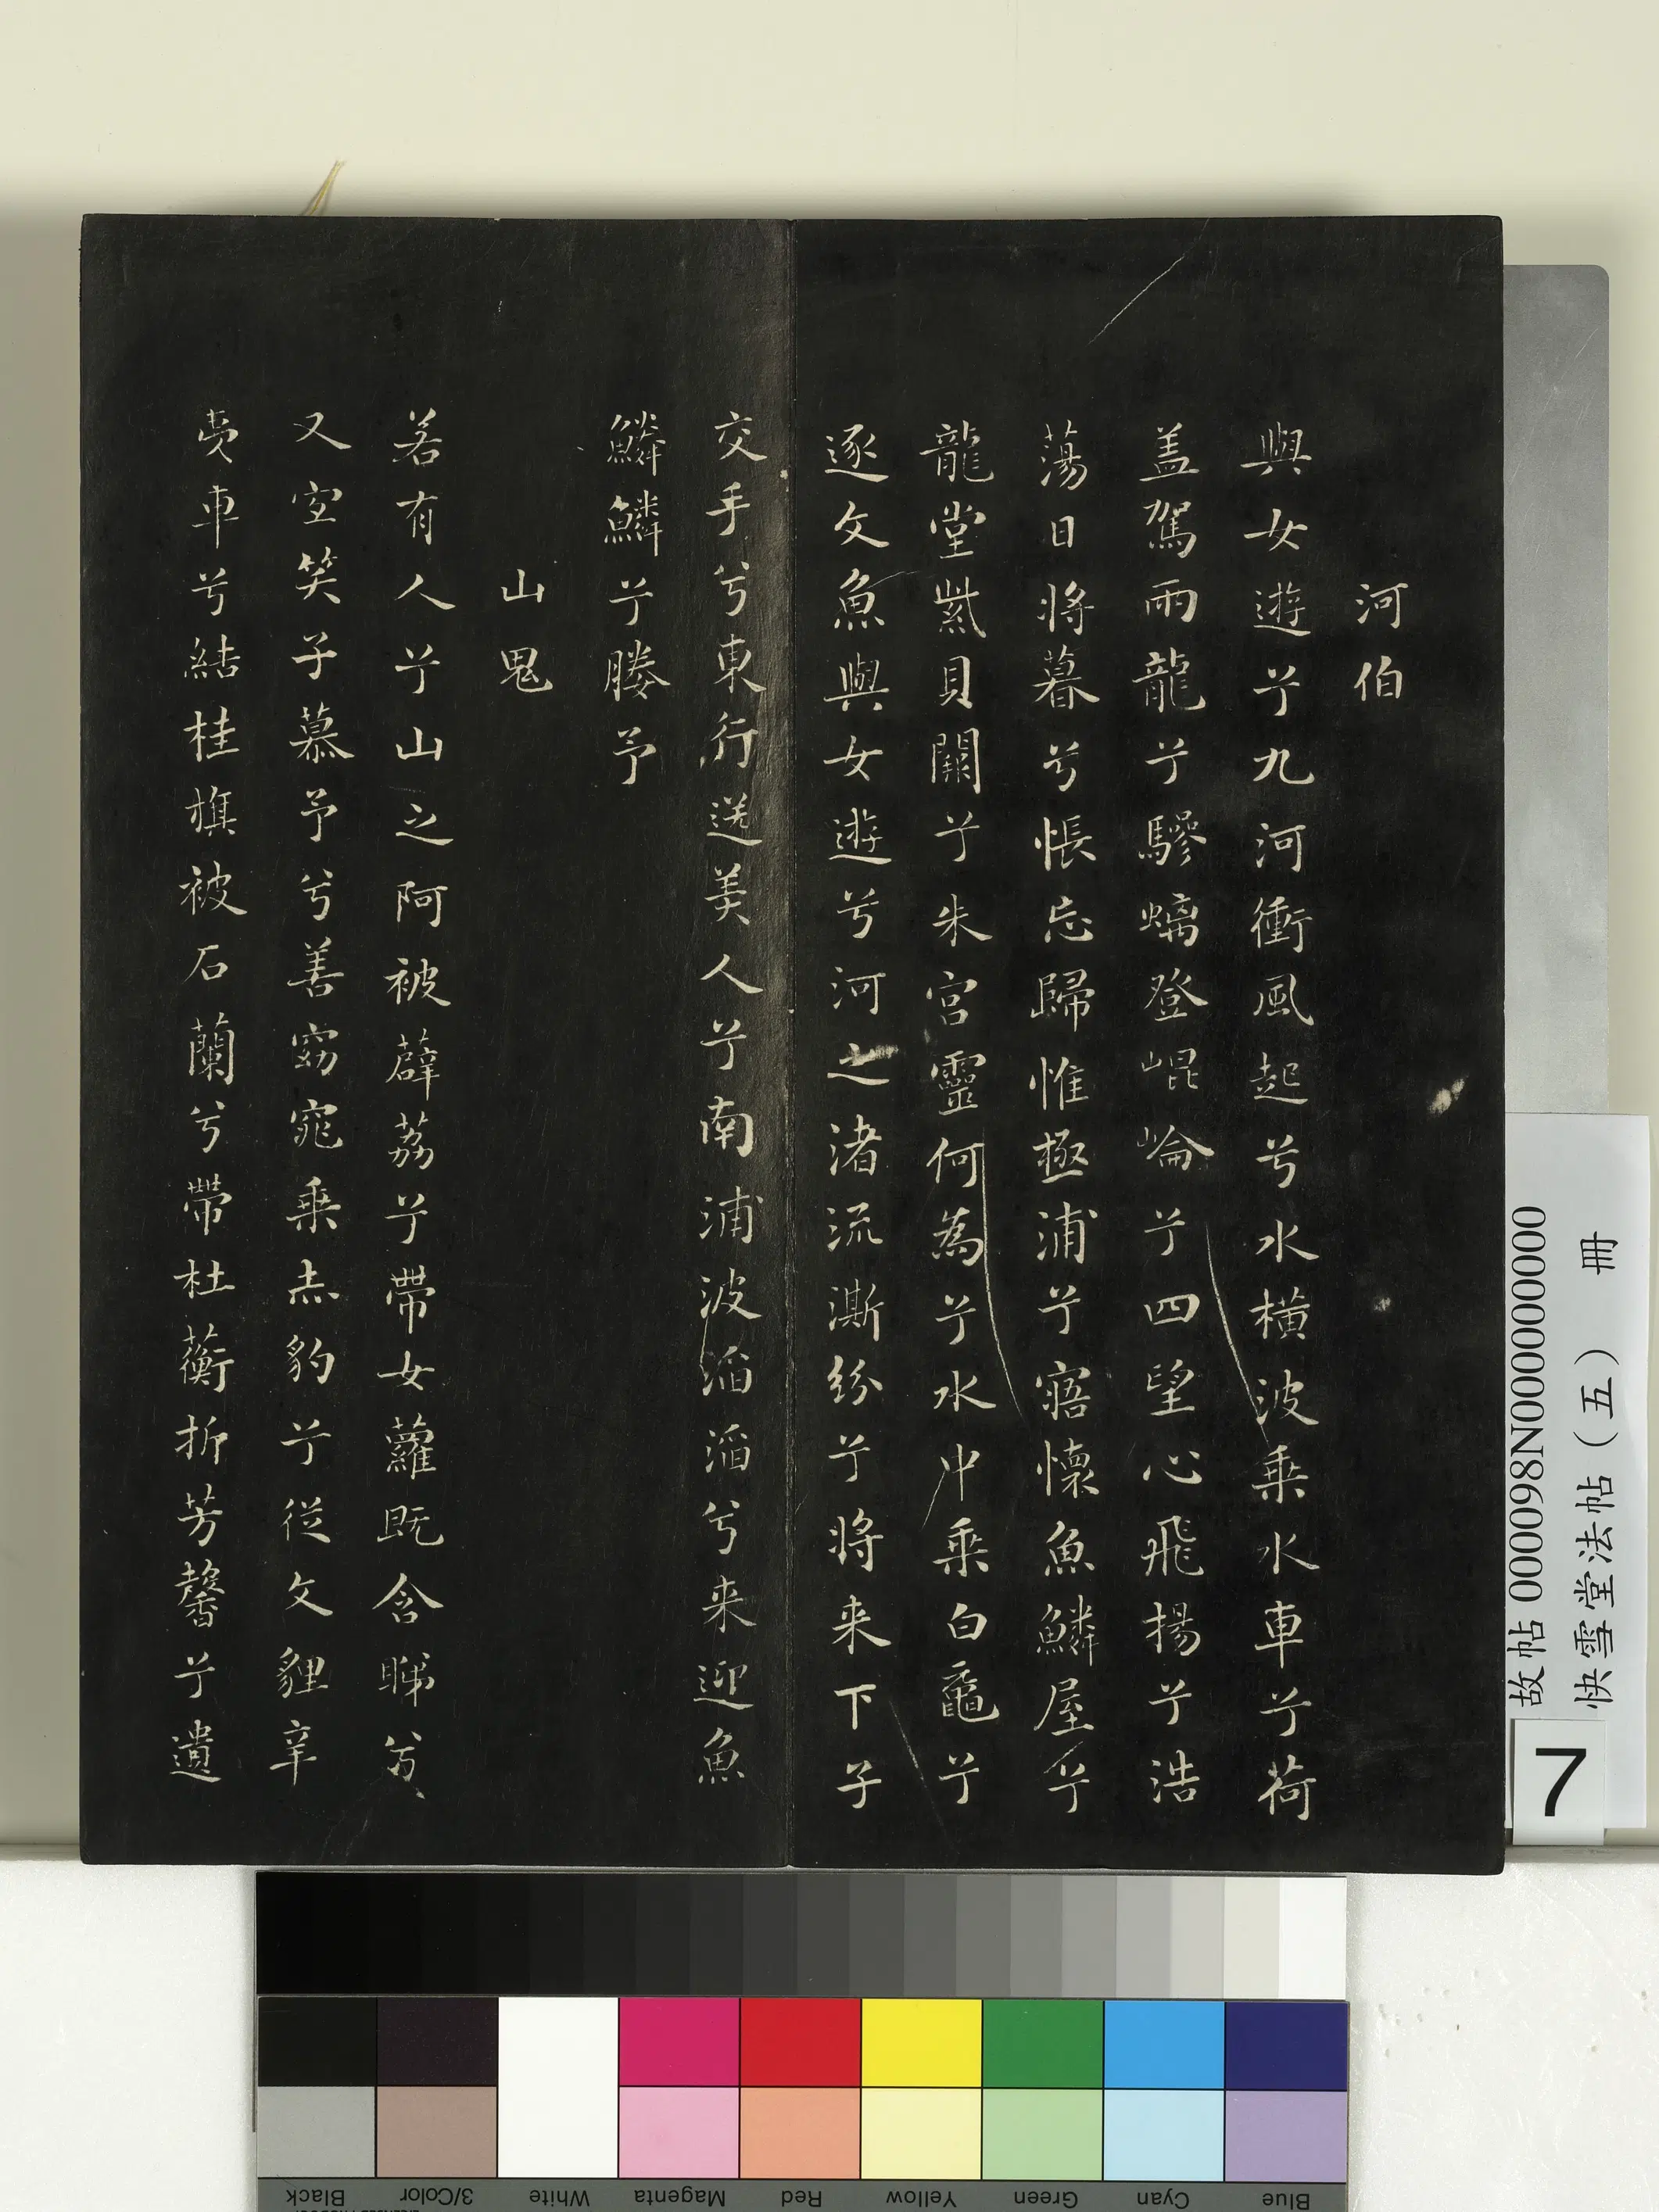 河伯
與女遊兮九河衝風起兮水橫波乗水車兮荷
盖駕兩龍兮驂螭登崐崘兮四望心飛揚兮浩
蕩日將暮兮悵忘歸惟極浦兮寤懷魚鱗屋兮
龍堂紫貝闕兮朱宮靈何為兮水中乗白黿兮
逐文魚與女遊兮河之渚流澌紛兮將来下子
交手兮東行送美人兮南浦波滔滔兮来迎魚
鱗鱗兮媵予
山鬼
若有人兮山之阿被薜荔兮帶女蘿既含睇兮
又宜笑子慕予兮善窈窕乗赤豹兮從文貍辛
夷車兮結桂旗被石蘭兮帶杜蘅折芳馨兮遺
故帖 000098N000000000
快雪堂法帖（五） 冊
7
Black
3/Color
White
Magenta
Red
Yellow
Green
Cyan
Blue